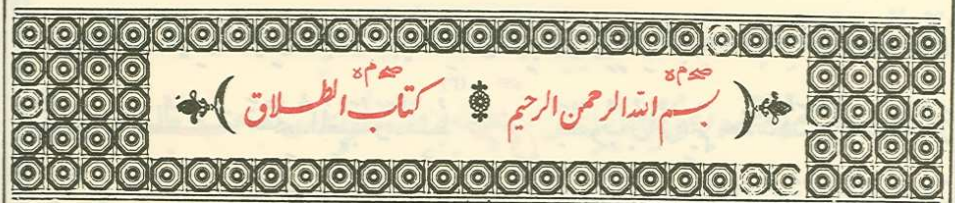 بسم الله الرحمن الرحيم كتاب الطلاق